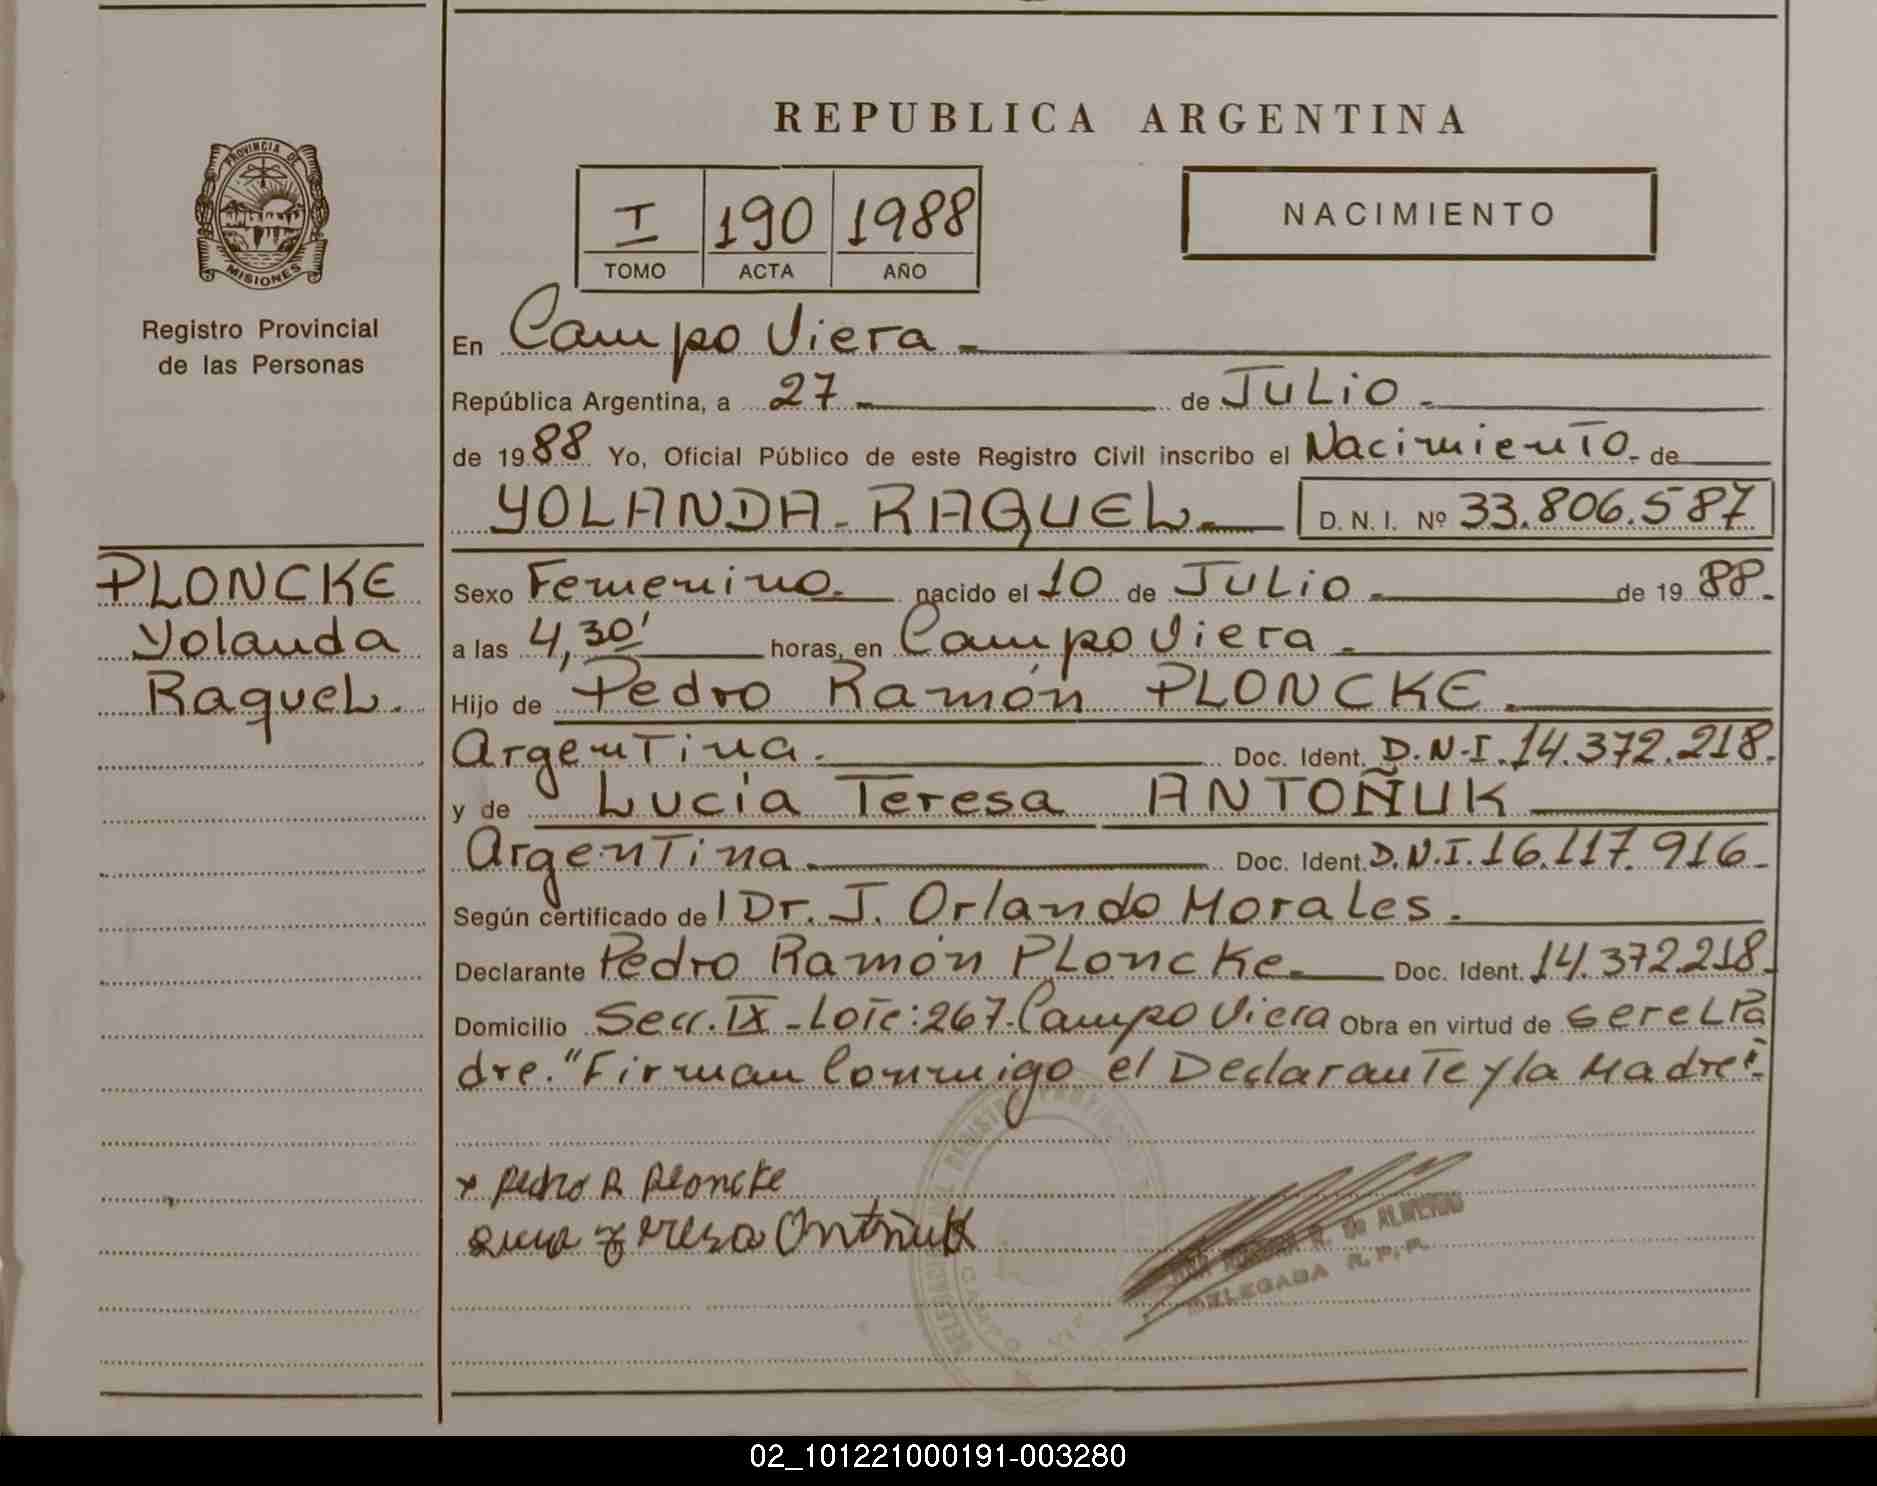 REPUBLICA ARGENTINA
PROVINCIA DE
MISIONES
Registro Provincial
de las Personas
I 190 1988
TOMO ACTA AÑO
NACIMIENTO
En Campo Viera
República Argentina, a 27 de JULio
de 1988 Yo, Oficial Público de este Registro Civil inscribo el Nacimiento de
YOLANDA-RAQUEL D. N. I. Nº 33.806.587
PLONCKE
Yolanda
Raquel.
Sexo Femenino. nacido el 10 de JULio de 1988.
a las 4,30' horas, en Campo Viera
Hijo de Pedro Ramón PLONCKE.
Argentina. Doc. Ident. D.N.I. 14.372.218.
y de Lucía Teresa ANTOÑUK
Argentina. Doc. Ident. D.N.I. 16.117.916
Según certificado del Dr. J. Orlando Morales.
Declarante Pedro Ramón Ploncke. Doc. Ident. 14.372.218.
Domicilio Secc. IX - Lote: 267. Campo Viera Obra en virtud de ser el Pa
dre. "Firman Conmigo el Declarante y la Madre".
x Pedro R Ploncke
Teresa Antoñuk
R. de ALMEIDA
DELEGADA R.P.P.
02_101221000191-003280